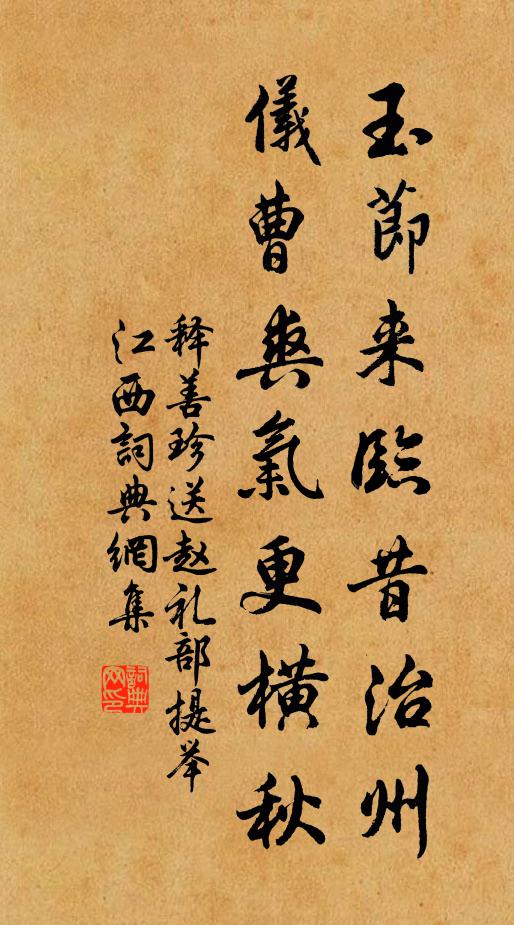 玉節来臨昔治州
儀曹爽氣更橫秋
释善珍送赵礼部提举
江西詞典網集
詞典
网印